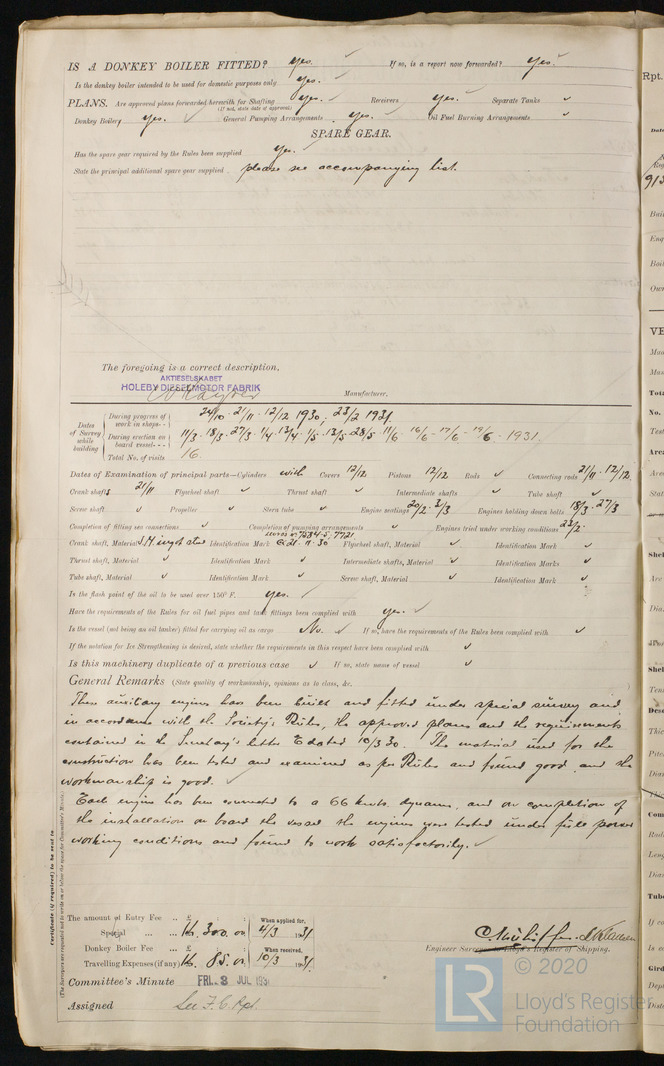 IS A DONKEY BOILER FITTED? Yes. If so, is a report now forwarded? Yes.
Is the donkey boiler intended to be used for domestic purposes only Yes.
PLANS. Are approved plans forwarded herewith for Shafting Yes. Receivers Yes. Separate Tanks ✓
(If not, state date of approval)
Donkey Boilers Yes. General Pumping Arrangements Yes. Oil Fuel Burning Arrangements ✓
SPARE GEAR.
Has the spare gear required by the Rules been supplied Yes.
State the principal additional spare gear supplied please see accompanying list.
The foregoing is a correct description,
AKTIESELSKABET
HOLEBY DIESELMOTOR FABRIK
Manufacturer.
Dates of Survey while building
During progress of work in shops-- 24/10 - 21/11 - 12/12 1930. 23/2 1931.
During erection on board vessel--- 11/3 - 18/3 - 27/3 - 1/4 - 13/4 - 1/5 - 13/5 - 28/5 - 11/6 - 16/6 - 17/6 - 19/6 - 1931.
Total No. of visits 16.
Dates of Examination of principal parts—Cylinders with Covers 12/12 Pistons 12/12 Rods ✓ Connecting rods 21/11 - 12/12.
Crank shafts 21/11 Flywheel shaft ✓ Thrust shaft ✓ Intermediate shafts ✓ Tube shaft ✓
Screw shaft ✓ Propeller ✓ Stern tube ✓ Engine seatings 20/2 - 3/3 Engines holding down bolts 18/3 - 27/3
Completion of fitting sea connections ✓ Completion of pumping arrangements ✓ Engines tried under working conditions 23/2.
Crank shaft, Material S.M. ingot steel Identification Mark 21-11-30 Flywheel shaft, Material ✓ Identification Mark ✓
Thrust shaft, Material ✓ Identification Mark ✓ Intermediate shafts, Material ✓ Identification Marks ✓
Tube shaft, Material ✓ Identification Mark ✓ Screw shaft, Material ✓ Identification Mark ✓
Is the flash point of the oil to be used over 150° F. Yes.
Have the requirements of the Rules for oil fuel pipes and tank fittings been complied with Yes. ✓
Is the vessel (not being an oil tanker) fitted for carrying oil as cargo No. ✓ If so, have the requirements of the Rules been complied with ✓
If the notation for Ice Strengthening is desired, state whether the requirements in this respect have been complied with ✓
Is this machinery duplicate of a previous case ✓ If so, state name of vessel ✓
General Remarks (State quality of workmanship, opinions as to class, &c.
These auxiliary engines has been built and fitted under special survey and
in accordance with the Society's Rules, the approved plans and the requirements
contained in the Secretary's letter E dated 10/3 30. The material used for the
construction has been tested and examined as per Rules and found good and the
workmanship is good. ✓
Each engine has been connected to a 66 kwts. dynamo, and on completion of
the installation on board the vessel the engines were tested under full power
working conditions and found to work satisfactorily. ✓
Certificate (if required) to be sent to
(The Surveyors are requested not to write on or below the space for Committee's Minute.)
The amount of Entry Fee .. £ : : When applied for,
Special ... ... Kr. 300.00 4/3 1931
Donkey Boiler Fee ... £ : : When received,
Travelling Expenses (if any) Kr. 85.00 10/3 1931
Engineer Surveyor to Lloyd's Register of Shipping.
Committee's Minute FRI. 3 JUL 1931
Assigned See F.E. Rpt.
© 2020
Lloyd's Register
Foundation
LR
Rpt.